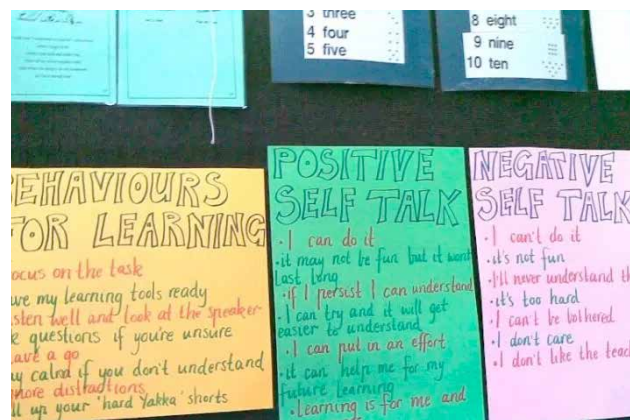 3 three
4 four
5 five
8 eight
9 nine
10 ten
BEHAVIOURS
FOR LEARNING
focus on the task
my learning tools ready
listen well and look at the speaker
questions if you're unsure
have a go
calm if you don't understand
ignore distractions
up your 'hard yakka' shorts
POSITIVE
SELF TALK
• I can do it
• it may not be fun but it wont
last long
• if I persist I can understand
• I can try and it will get
easier to understand
• I can put in an effort
• it can help me for my
future learning
• Learning is for me and
NEGATIVE
SELF TALK
• I can't do it
• it's not fun
• I'll never understand
• it's too hard
• I can't be bothered
• I don't care
• I don't like the